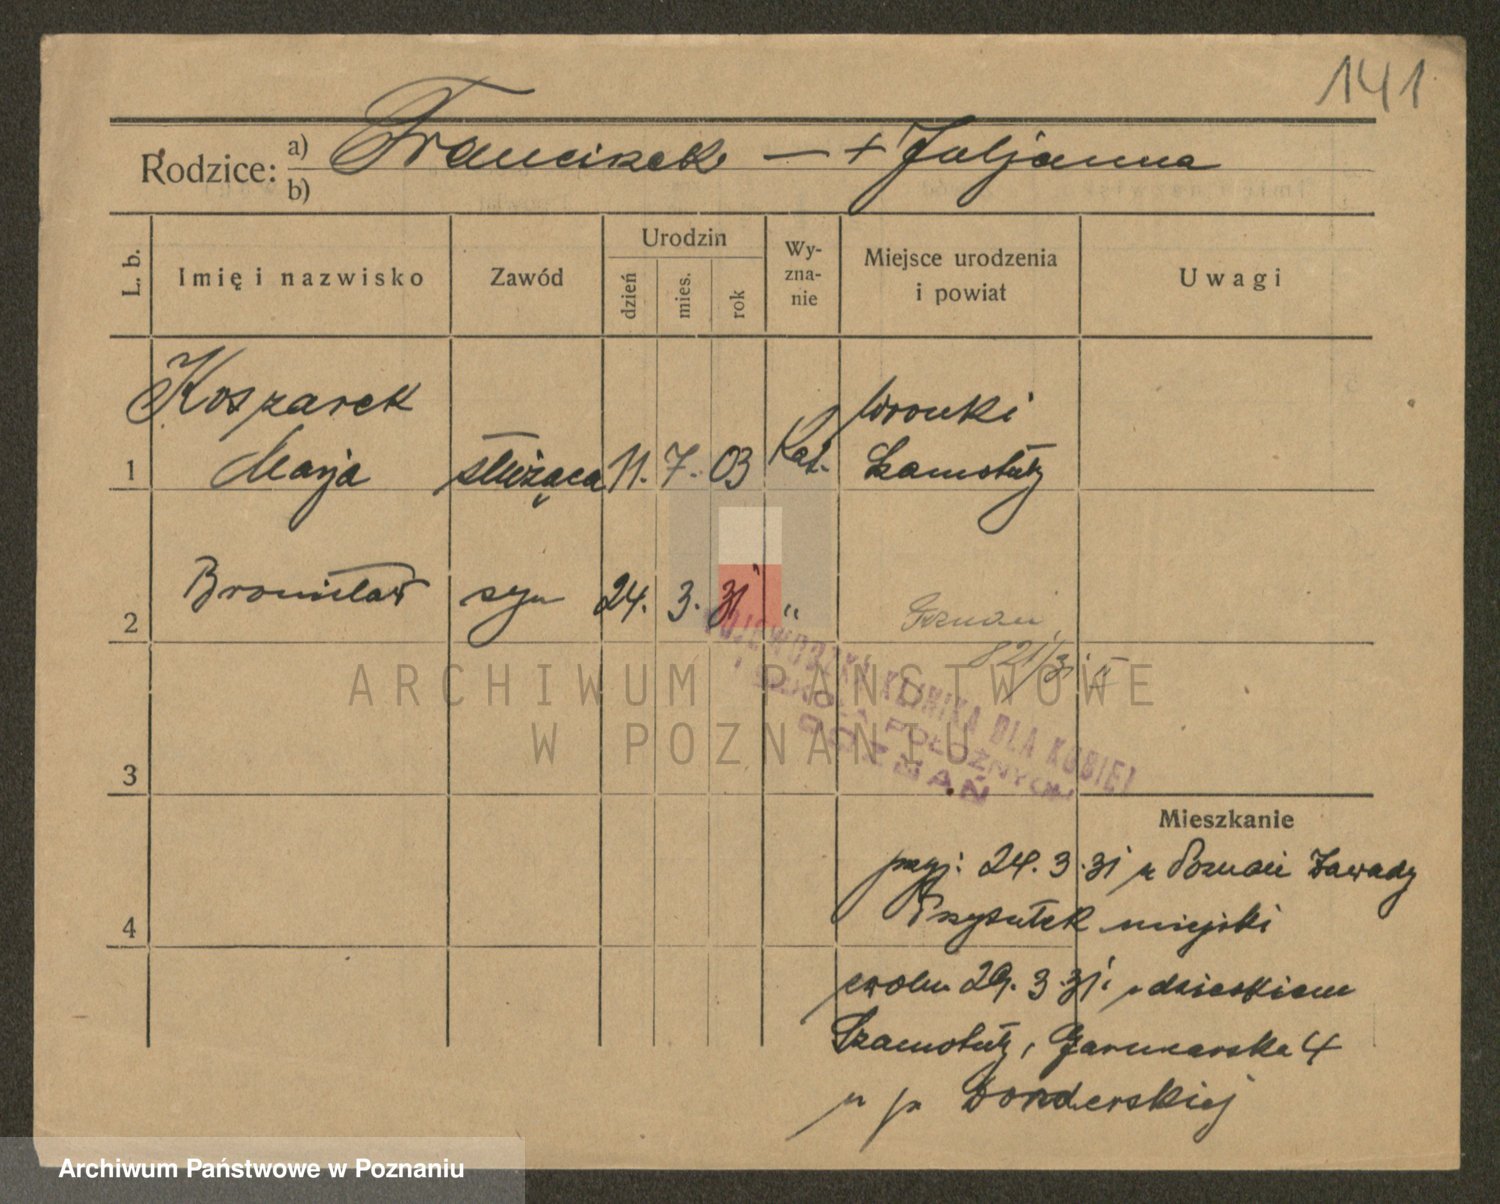 141
Rodzice: a) Franciszek — + Juljanna
b)
L. b.
Imię i nazwisko
Zawód
Urodzin
dzień
mies.
rok
Wy-
zna-
nie
Miejsce urodzenia
i powiat
Uwagi
Koszarek
Wronki
1 Marja służąca 11. 7. 03 Kat. Szamotuły
2 Bronisław syn 24. 3. 31 " Poznań
821/31 II
WOJEWÓDZKA KLINIKA DLA KOBIET
I SZKOŁA POŁOŻNYCH
POZNAŃ
ARCHIWUM PAŃSTWOWE
W POZNANIU
3
Mieszkanie
przyj: 24. 3. 31 Poznań Zawady
4 Przytułek miejski
29. 3. 31. dzieckiem
Szamotuły, Garncarska 4
u p.
Archiwum Państwowe w Poznaniu